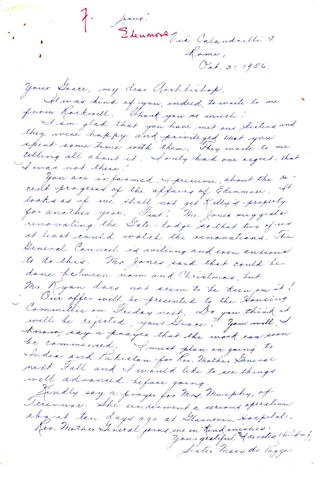 J.
Jesus!
Edenmore
Via Calandrelli 7
Rome,
Oct. 3. 1956.
Your Grace, my dear Archbishop,
It was kind of you, indeed, to write to me
from Rockwell. Thank you so much!
I am glad that you have met our Sisters and
they were happy and privileged that you
spent some time with them. They wrote to me
telling all about it. I only had one regret, that
I was not there!
You are informed, I presume, about the re-
cent progress of the affairs of Edenmore. It
looks as if we shall not get Kelly's property
for another year. Fiat! Mr. Jones suggests
renovating the Gate-lodge so that two of us
at least could watch the renovations. The
General Council is willing and even anxious
to do this. Mr. Jones said that could be
done between now and Christmas, but
Mr. Ryan does not seem to be keen on it!
Our offer will be presented to the Housing
Committee on Friday next. Do you think it
will be rejected, your Grace? You will, I
know, say a prayer that the work can soon
be commenced. I must plan on going to
India and Pakistan for Rev. Mother General
next Fall and I would like to see things
well advanced before going.
Kindly say a prayer for Mrs. Murphy, of
She underwent a serious operation
about ten days ago at Hospital.
Rev. Mother General joins me in kind wishes.
Your grateful & devoted child in J.
Sister Mary de